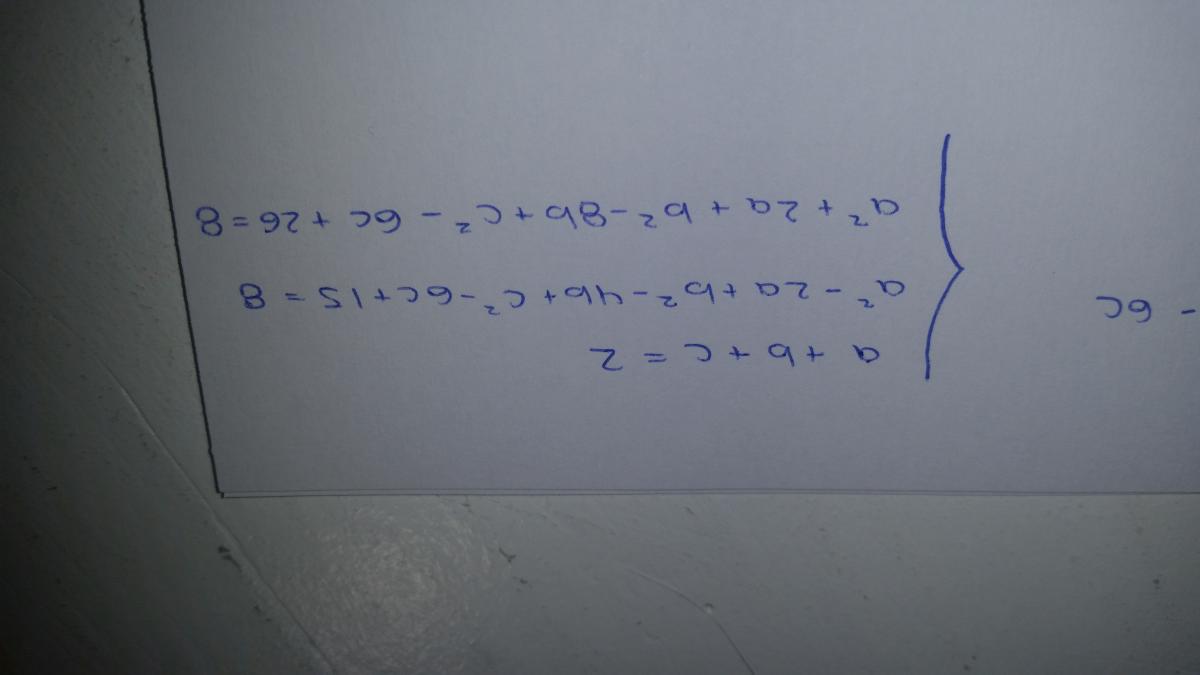 - 6c
a + b + c = 2
a² - 2a + b² - 4b + c² - 6c + 15 = 8
a² + 2a + b² - 8b + c² - 6c + 26 = 8